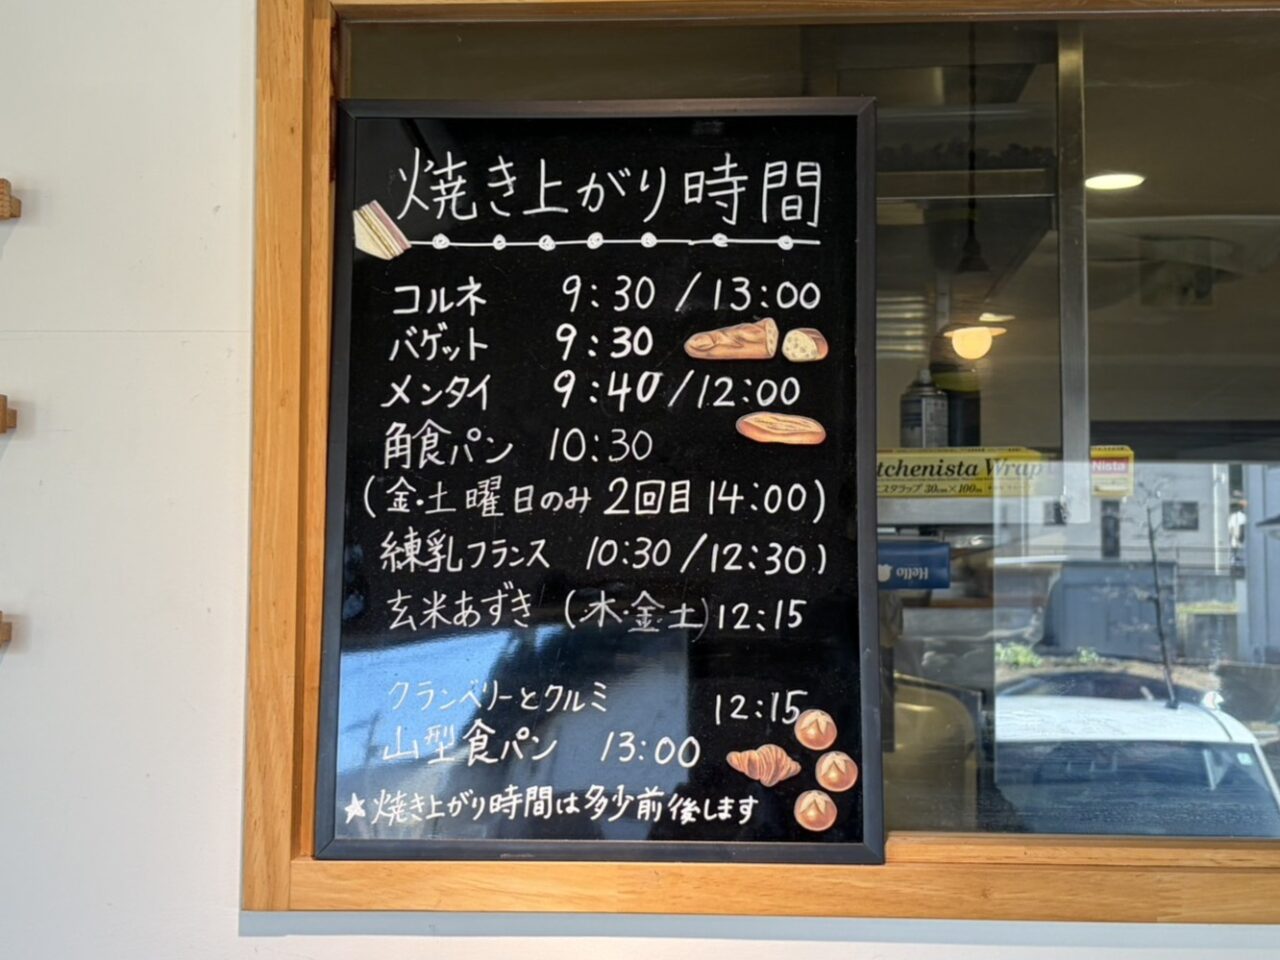 焼き上がり時間
コルネ 9:30/13:00
バゲット 9:30
メンタイ 9:40/12:00
角食パン 10:30
(金・土曜日のみ 2回目 14:00)
練乳フランス 10:30/12:30)
玄米あずき (木・金土)12:15
クランベリーとクルミ 12:15
山型食パン 13:00
★焼き上がり時間は多少前後します
tchenista Wrap
30cm×100m
Nista
Hello